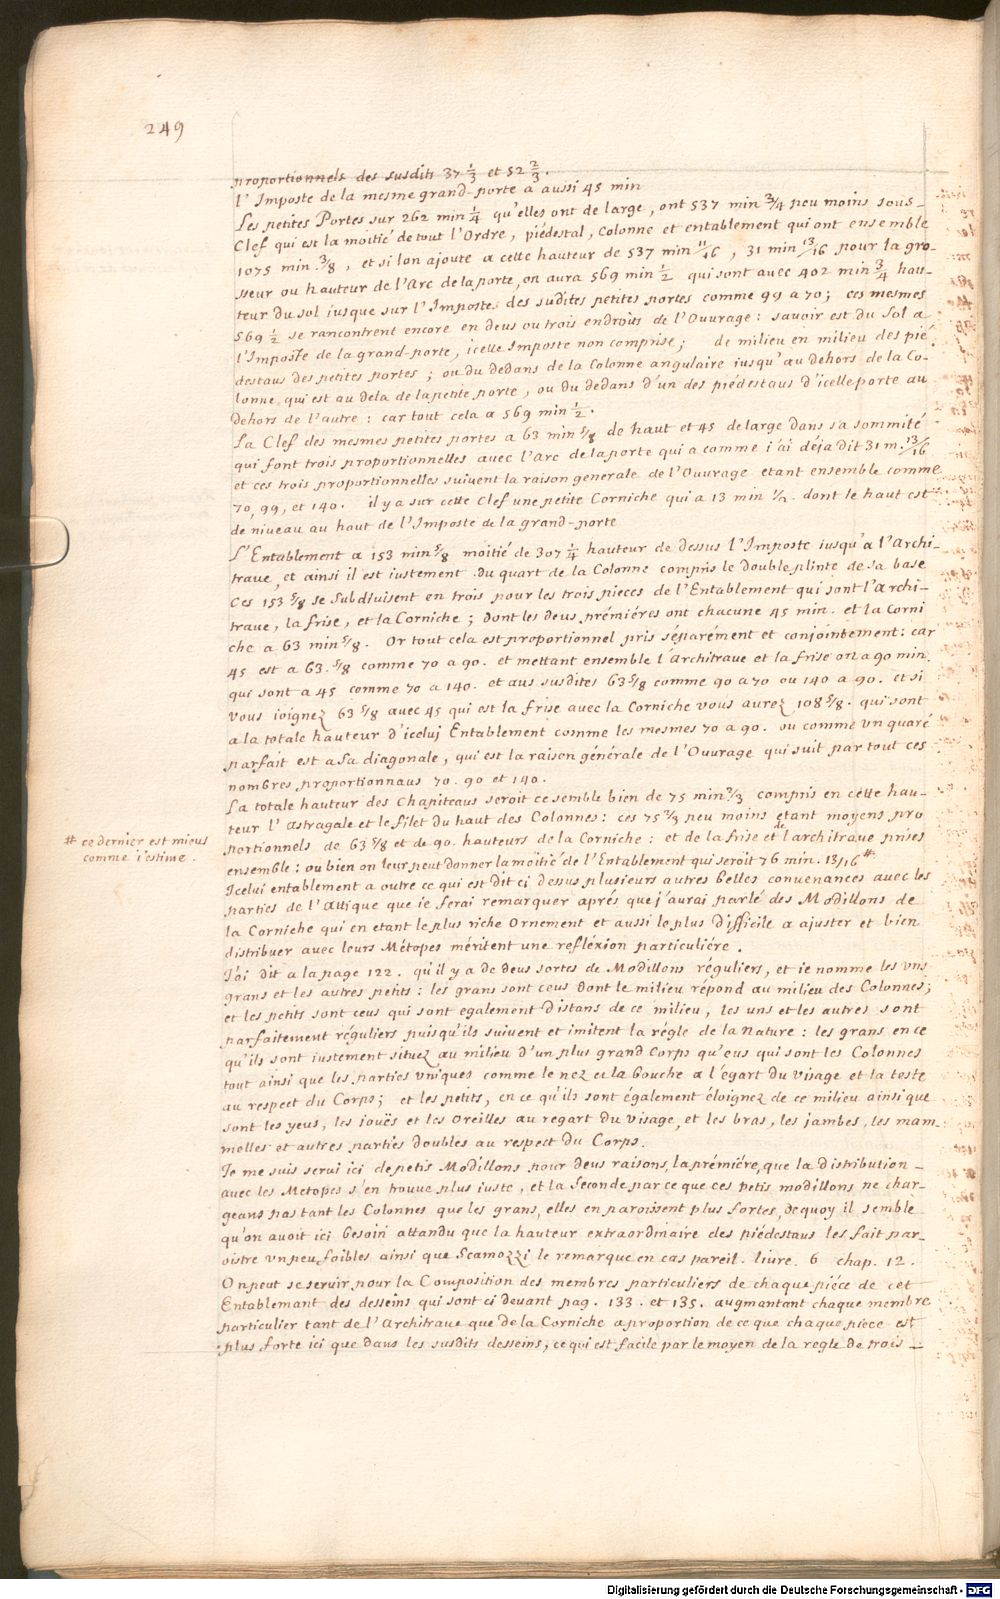 249
proportionnels des susdits 37 1/3 et 52 2/3.
l'Imposte de la mesme grand-porte a aussi 45 min
Les petites Portes sur 262 min 1/4 qu'elles ont de large, ont 537 min 3/4 peu moins sous-
Clef qui est la moitié de tout l'Ordre, piédestal, Colonne et entablement qui ont ensemble
1075 min. 3/8, et si lon ajoute a cette hauteur de 537 min 11/16, 31 min 13/16 pour la gro-
sseur ou hauteur de l'Arc de la porte, on aura 569 min 1/2 qui sont avec 402 min 3/4 hau-
teur du sol iusque sur l'Imposte des sudites petites portes comme 99 a 70; ces mesmes
569 1/2 se rancontrent encore en deus ou trois endroits de l'Ouurage: sauoir est du Sol a
l'Imposte de la grand-porte, icelle Imposte non comprise; de milieu en milieu des pié-
destaus des petites portes; ou du dedans de la Colonne angulaire iusqu'au dehors de la Co-
lonne qui est au dela de la petite porte, ou du dedans d'un des piédestaus d'icelle porte au
dehors de l'autre: car tout cela a 569 min 1/2.
La Clef des mesmes petites portes a 63 min 5/8 de haut et 45 de large dans sa sommité
qui font trois proportionnelles avec l'Arc de la porte qui a comme i'ai déja dit 31 m. 13/16
et ces trois proportionnelles suivent la raison generale de l'Ouurage etant ensemble comme
70, 99, et 140. il y a sur cette Clef une petite Corniche qui a 13 min 1/2. dont le haut est
de niveau au haut de l'Imposte de la grand-porte
L'Entablement a 153 min 5/8 moitié de 307 1/4 hauteur de dessus l'Imposte iusqu'a l'Archi-
traue, et ainsi il est iustement du quart de la Colonne compris le double plinte de sa base
Ces 153 5/8 se subdivisent en trois pour les trois pieces de l'Entablement qui sont l'Archi-
traue, la frise, et la Corniche; dont les deus prémiéres ont chacune 45 min. et la Corni
che a 63 min 5/8. Or tout cela est proportionnel pris séparément et conjointement: car
45 est a 63. 5/8 comme 70 a 90. et mettant ensemble l'Architraue et la frise on a 90 min.
qui sont a 45 comme 70 a 140. et aus susdites 63 5/8 comme 90 a 70 ou 140 a 90. et si
vous ioignez 63 5/8 avec 45 qui est la frise avec la Corniche vous aurez 108 5/8. qui sont
a la totale hauteur d'iceluj Entablement comme les mesmes 70 a 90. ou comme un quaré
parfait est a sa diagonale, qui est la raison générale de l'Ouurage qui suit par tout ces
nombres proportionnaus 70. 90 et 140.
La totale hauteur des Chapiteaus seroit ce semble bien de 75 min 2/3 compris en cette hau-
teur l'astragale et le filet du haut des Colonnes: ces 75 2/3 peu moins etant moyens pro
portionnels de 63 5/8 et de 90. hauteurs de la Corniche: et de la frise et de l'architraue prises
ensemble: ou bien on leur peut donner la moitié de l'Entablement qui seroit 76 min. 13/16 #.
# ce dernier est mieus
comme i'estime.
Icelui entablement a outre ce qui est dit ci dessus plusieurs autres belles convenances avec les
parties de l'attique que ie ferai remarquer aprés que j'aurai parlé des Modillons de
la Corniche qui en etant le plus riche Ornement et aussi le plus difficile a ajuster et bien
distribuer avec leurs Métopes méritent une refléxion particuliére.
J'ai dit a la page 122. qu'il y a de deus sortes de Modillons réguliers, et ie nomme les vns
grans et les autres petits: les grans sont ceus dont le milieu répond au milieu des Colonnes;
et les petits sont ceus qui sont egalement distans de ce milieu, les uns et les autres sont
parfaitement réguliers puisqu'ils suivent et imitent la régle de la nature: les grans en ce
qu'ils sont iustement situez au milieu d'un plus grand Corps qu'eus qui sont les Colonnes
tout ainsi que les parties vniques comme le nez et la bouche a l'égart du visage et la teste
au respect du Corps; et les petits, en ce qu'ils sont également éloignez de ce milieu ainsi que
sont les yeus, les jouës et les Oreilles au regart du visage, et les bras, les jambes, les mam-
melles et autres parties doubles au respect du Corps.
Je me suis serui ici de petis Modillons pour deus raisons, la prémiére, que la distribution -
avec les Metopes s'en trouue plus iuste, et la seconde par ce que ces petis modillons ne char-
geans pas tant les Colonnes que les grans, elles en paroissent plus fortes, de quoy il semble
qu'on avoit ici besoin attendu que la hauteur extraordinaire des piédestaus les fait par-
oistre un peu foibles ainsi que Scamozzi le remarque en cas pareil. liure. 6 chap. 12.
On peut se seruir pour la Composition des membres particuliers de chaque piéce de cet
Entablemant des desseins qui sont ci devant pag. 133. et 135. augmantant chaque membre
particulier tant de l'Architraue que de la Corniche a proportion de ce que chaque piece est
plus forte ici que dans les susdits desseins, ce qui est facile par le moyen de la regle de trois -
Digitalisierung gefördert durch die Deutsche Forschungsgemeinschaft - DFG